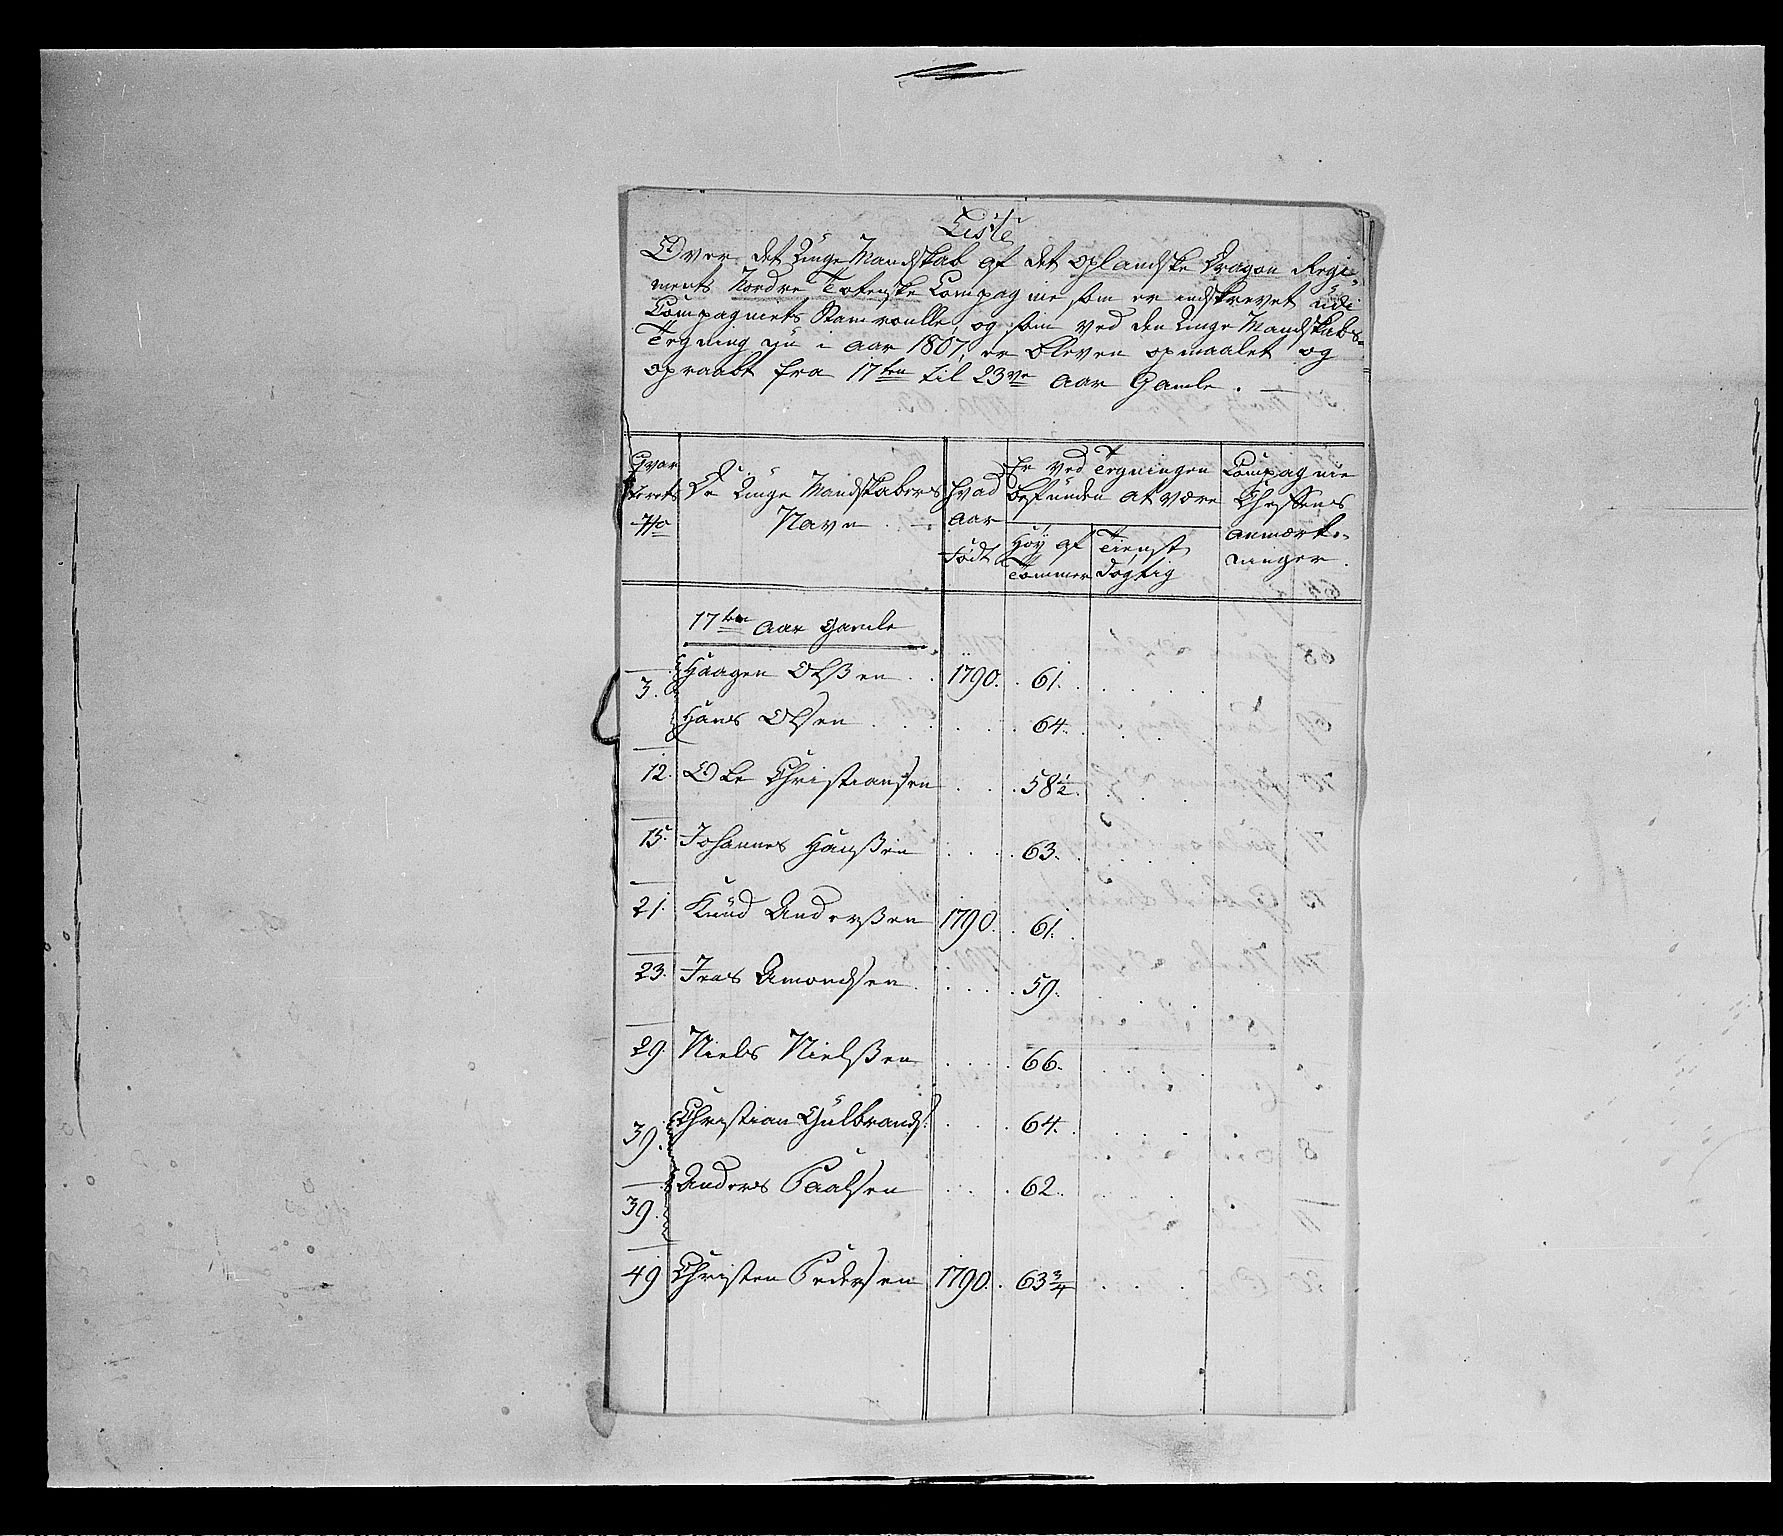 Liste
Over det Unge Mandskab af det oplandske Dragon Regi-
ments Nordre Totenske Compagnie som er indskrevet udi
Compagniets Stamroulle, og som ved den Unge Mandskabs-
Tegning nu i Aar 1807, er bleven opmaalet og
opraabt fra 17ten til 23de Aar Gamle. —
Qvar-
terets
No
De Unge Mandskabers
Navn
Hvad
Aar
Født
Er ved Tegningen
befunden at være
Høy af
Tommer
Tienst
dygtig
Compagnie
Cheffens
Anmærk-
ninger.
17ten Aar Gamle
3. Haagen Olßen 1790. 61.
Hans Olsen 64.
12. Ole Christiansen 58½.
15. Johannes Hanßen 63.
21. Knud Anderßen 1790. 61.
23. Jens Amondsen 59.
29. Niels Nielßen 66.
39. Christian Gulbrands. 64.
39. Anders Paalsen 62.
49 Christen Pedersen 1790. 63¾